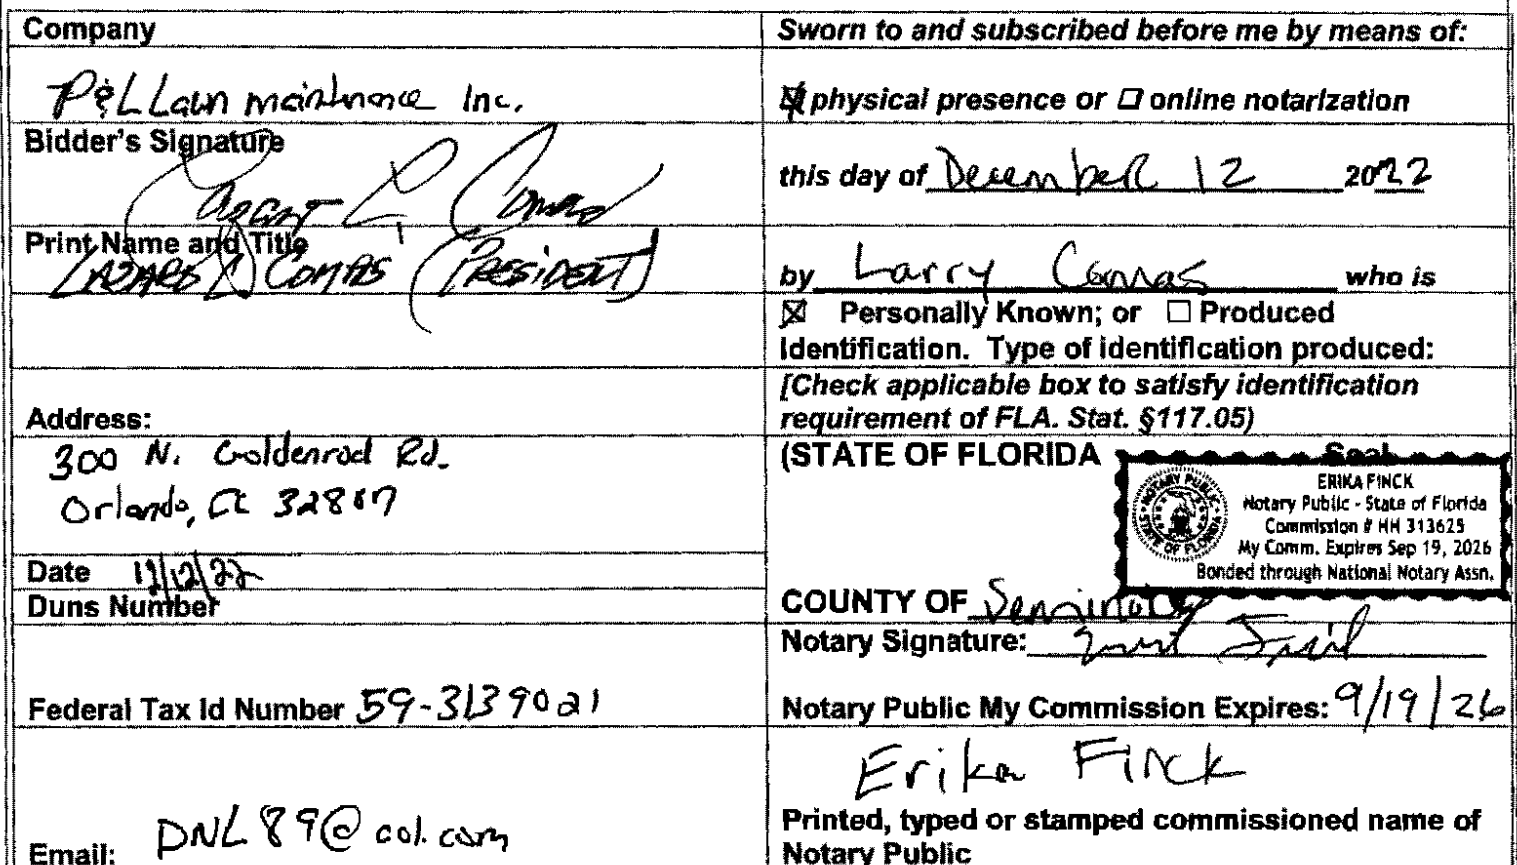 Company
P&L Lawn maintnance Inc.
Bidder's Signature
Print Name and Title
LAZARO L COMAS (PRESIDENT)
Address:
300 N. Goldenrod Rd.
Orlando, FL 32807
Date 12/12/22
Duns Number
Federal Tax Id Number 59-3139021
Email: PNL89@aol.com
Sworn to and subscribed before me by means of:
☒ physical presence or ☐ online notarization
this day of December 12 2022
by Larry Comas who is
☒ Personally Known; or ☐ Produced
Identification. Type of identification produced:
[Check applicable box to satisfy identification
requirement of FLA. Stat. §117.05)
(STATE OF FLORIDA Seal
ERIKA FINCK
Notary Public - State of Florida
Commission # HH 313625
My Comm. Expires Sep 19, 2026
Bonded through National Notary Assn.
NOTARY PUBLIC
STATE OF FLORIDA
COUNTY OF Seminole
Notary Signature:
Notary Public My Commission Expires: 9/19/26
Erika Finck
Printed, typed or stamped commissioned name of
Notary Public